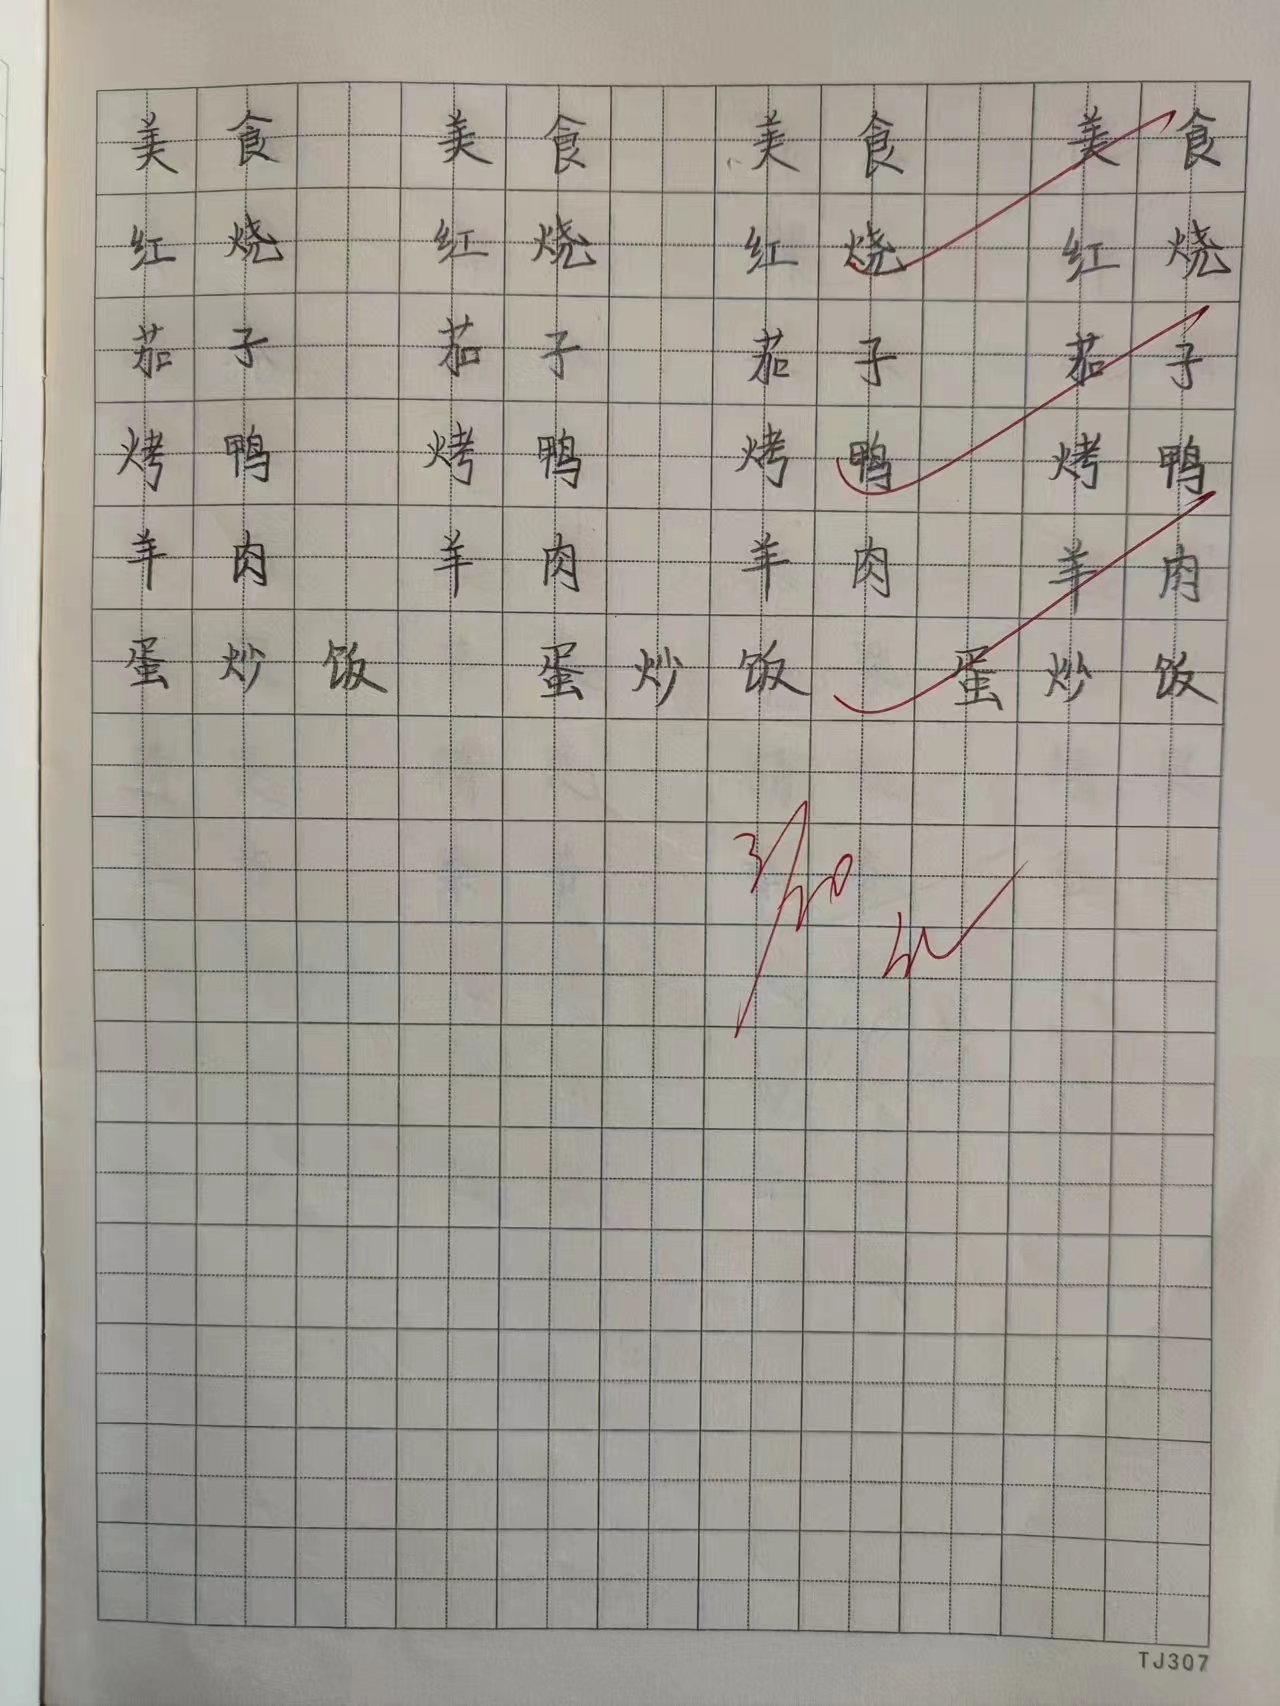 美食 美食 美食 美食
红烧 红烧 红烧 红烧
茄子 茄子 茄子 茄子
烤鸭 烤鸭 烤鸭 烤鸭
羊肉 羊肉 羊肉 羊肉
蛋炒饭 蛋炒饭 蛋炒饭
3/20
TJ307